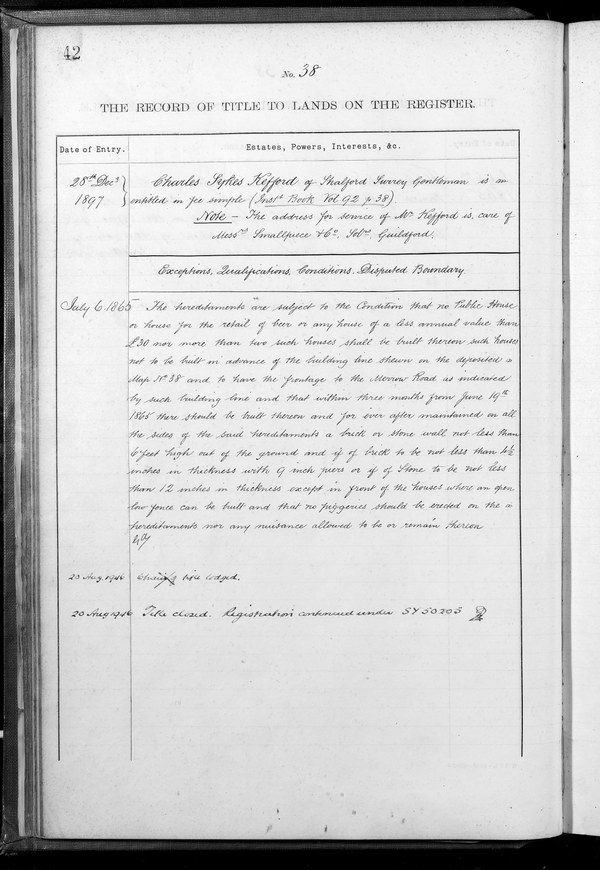 42
No. 38
THE RECORD OF TITLE TO LANDS ON THE REGISTER.
Date of Entry.
Estates, Powers, Interests, &c.
28th Decr 1897
Charles Sykes Kefford of Shalford Surrey Gentleman is
entitled in fee simple (Inst. Book Vol 92 p 38)
Note – The address for service of Mr Kefford is, care of
Messrs Smallpiece & Co, Solrs, Guildford.
Exceptions, Qualifications, Conditions, Disputed Boundary.
July 6. 1865
The hereditaments are subject to the Condition that no Public House
or house for the retail of beer or any house of a less annual value than
£30 nor more than two such houses shall be built thereon such houses
not to be built in advance of the building line shewn on the deposited
Map No 38 and to have the frontage to the Merrow Road as indicated
by such building line and that within three months from June 19th
1865 there should be built thereon and for ever after maintained on all
the sides of the said hereditaments a brick or stone wall not less than
6 feet high out of the ground and if of brick to be not less than 4½
inches in thickness with 9 inch piers or if of Stone to be not less
than 12 inches in thickness except in front of the houses where an open
low fence can be built and that no piggeries should be erected on the
hereditaments nor any nuisance allowed to be or remain thereon
20 Aug. 1946
title lodged.
20 Aug 1946
Title closed. Registration continued under SY50205